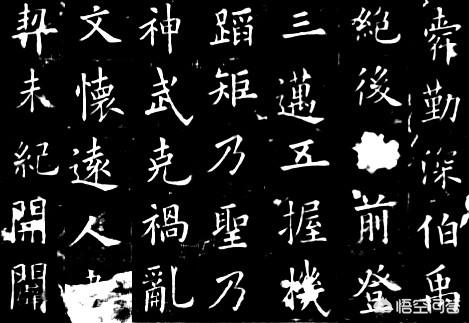 舜勤深伯禹
絕後前登
三邁五握機
蹈矩乃聖乃
神武克禍亂
文懷遠人
契未紀開闢
悟空问答